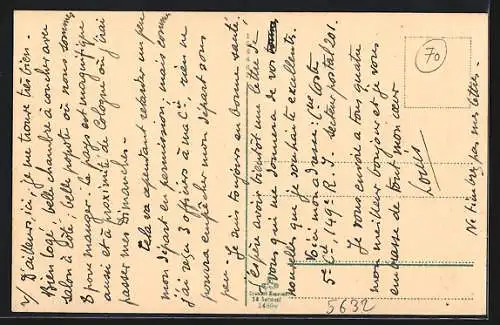 2/ D'ailleurs, ici, je me trouve très bien.
Bien logé : belle chambre à coucher avec
salon à côté ; belle popote où nous sommes
8 pour manger. Le pays est magnifique
aussi et à proximité de Cologne où j'irai
passer mes dimanches.
Cela va cependant retarder un peu
mon départ en permission, mais comme
j'ai reçu 3 officiers à ma Cie, rien ne
pourra empêcher mon départ sous
peu.
Je suis toujours en bonne santé.
J'espère avoir bientôt une lettre de
vous qui me donnera de vos
nouvelles que je souhaite excellentes.
Voici mon adresse : Coste
5e Cie, 149e R.I. secteur postal 201.
Je vous envoie à tous quatre
mon meilleur bonjour et je vous
embrasse de tout mon cœur
Louis
Ne timbrez pas mes lettres.
70
5632